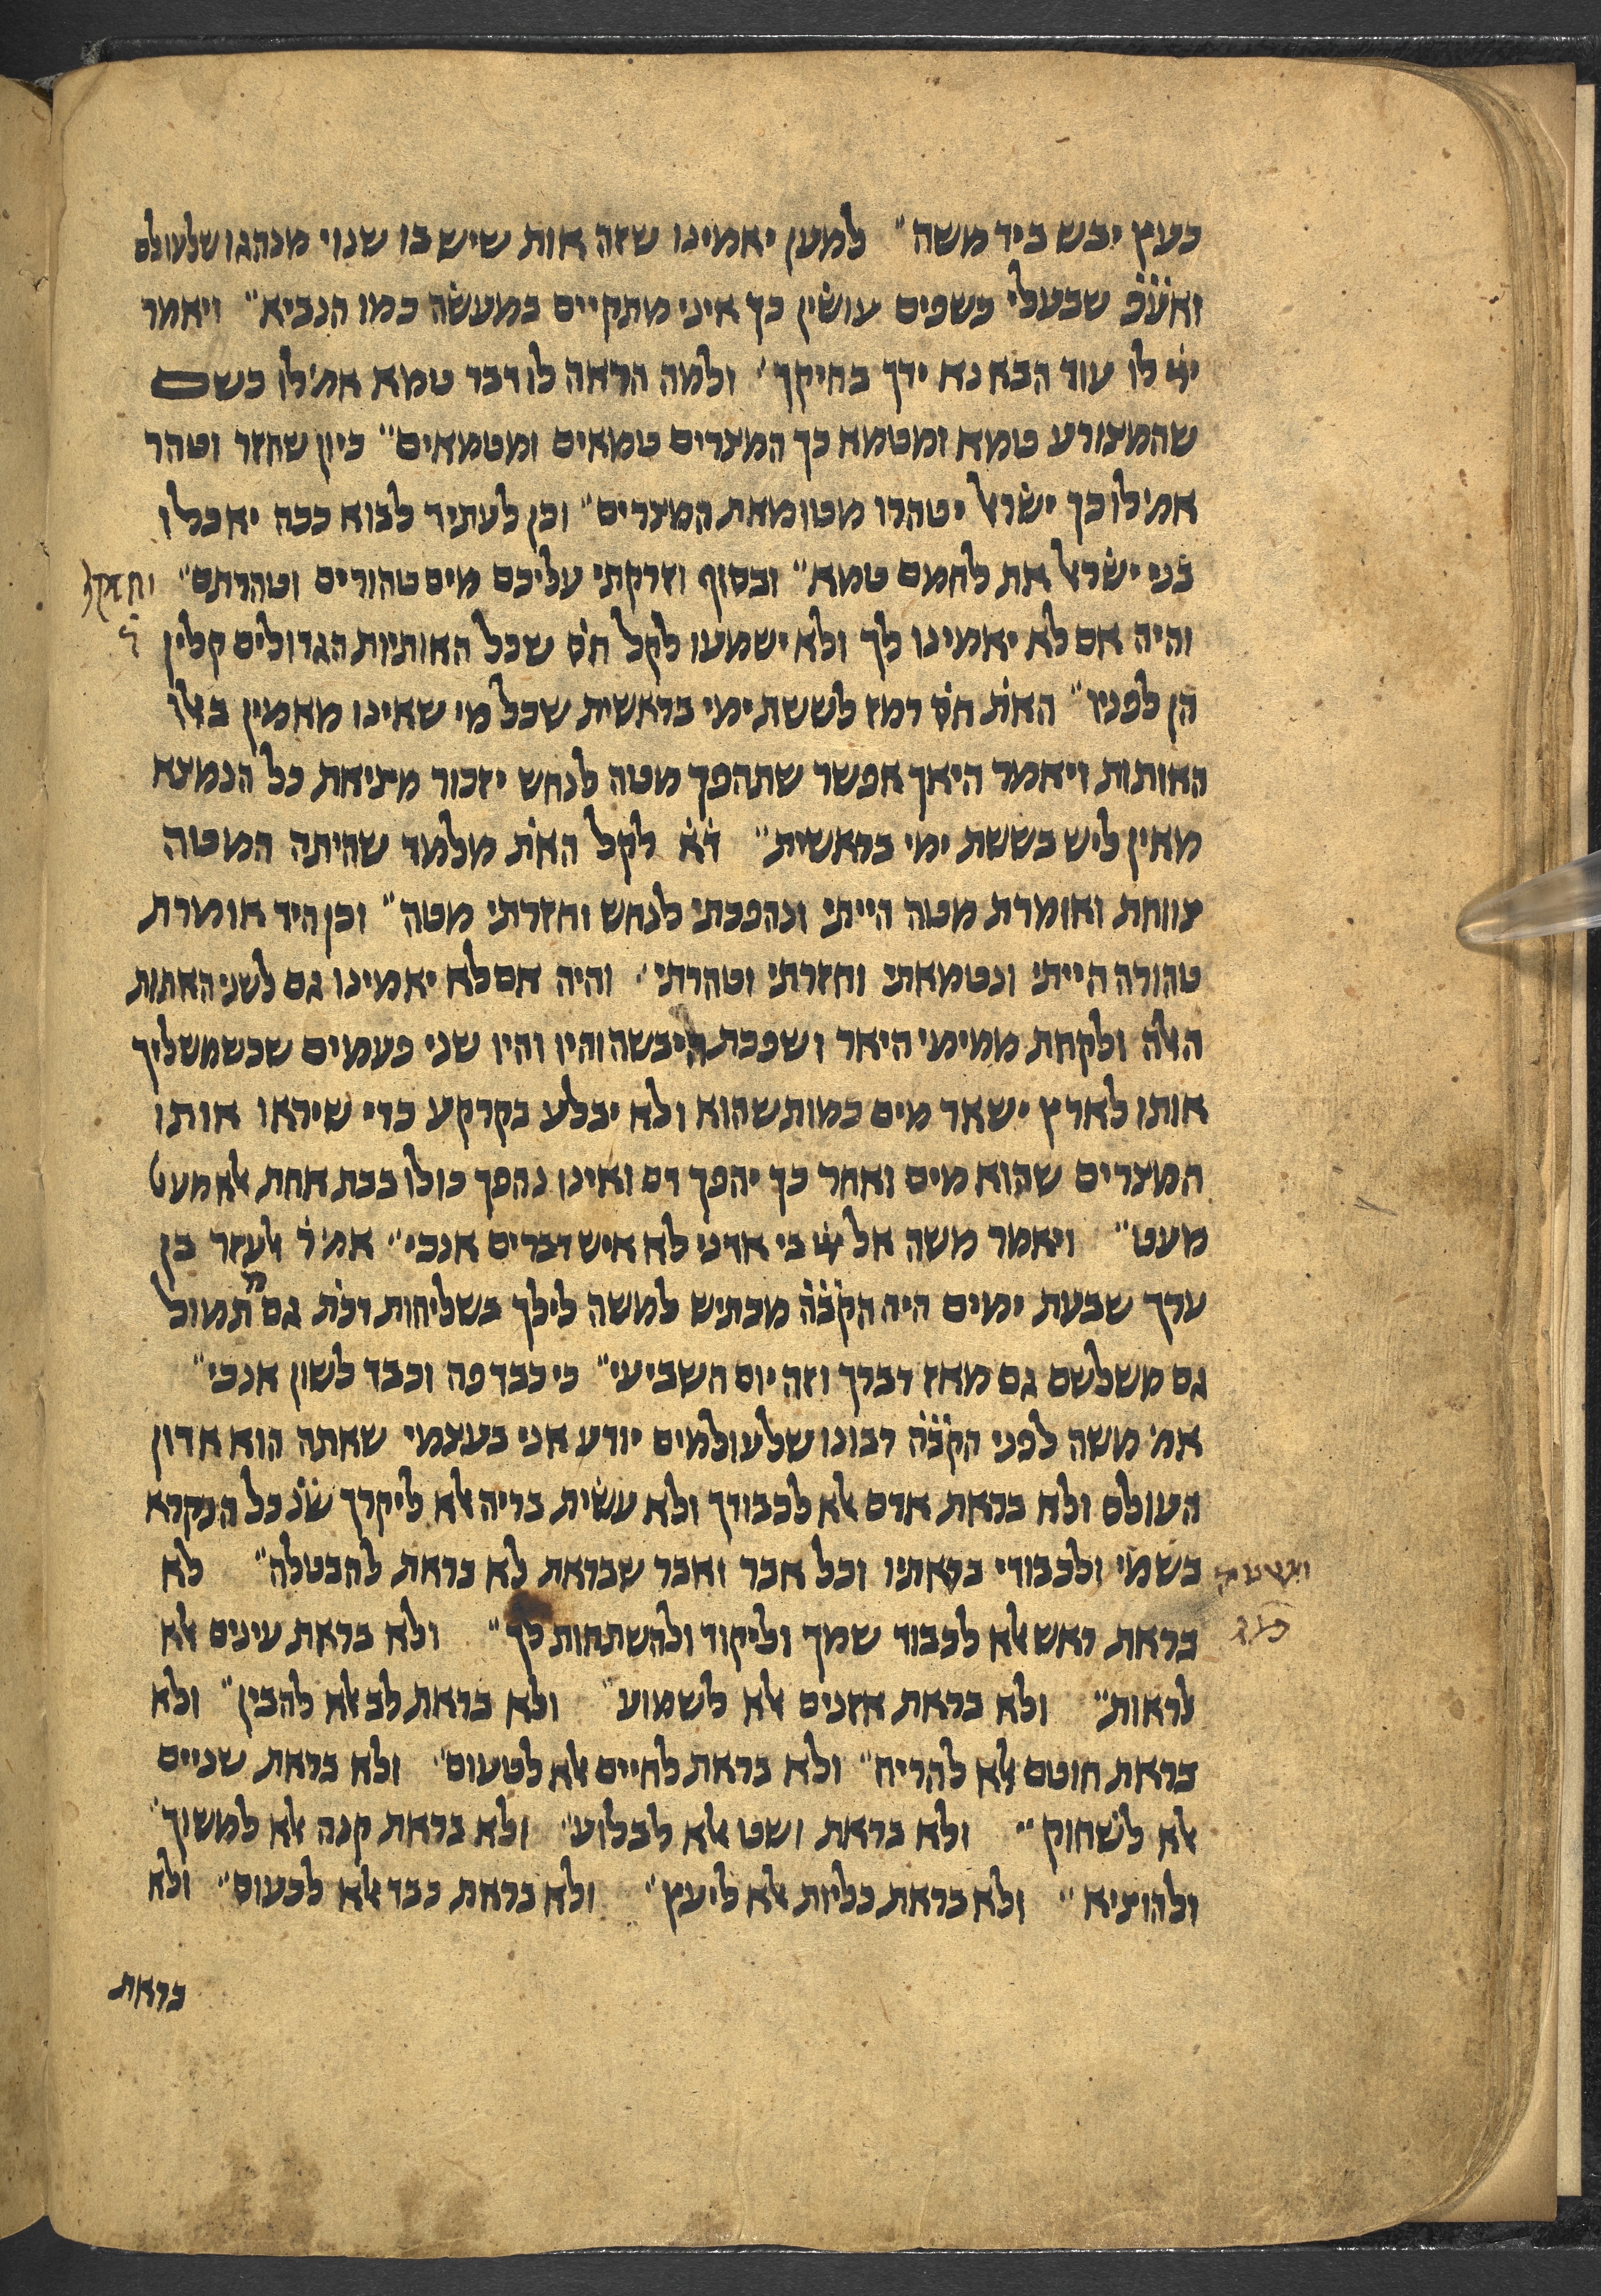 כעץ יבש ביד משה״ למען יאמינו שזה אות שיש בו שנוי מנהגו שלעולם
ואע̇פ̇ שבעלי כשפים עושין כך איני מתקיים במעשה כמו הנביא״ ויאמר
ייי לו עוד הבא נא ידך בחיקך׳ ולמה הראה לו דבר טמא אמ׳ לו כשם
שהמצורע טמא ומטמא כך המצרים טמאים ומטמאים״ כיון שחזר וטהר
אמ׳ לו כך ישראל יטהרו מטומאת המצרים״ וכן לעתיד לבוא ככה יאכלו
בני ישראל את לחמם טמא״ ובסוף וזרקתי עליכם מים טהורים וטהרתם״
והיה אם לא יאמינו לך ולא ישמעו לקל חס̇ שכל האותיות הגדולים קלין
הן לפניו״ האת̇ חס̇ רמז לששת ימי בראשית שכל מי שאינו מאמין באלו
האותות ויאמר היאך אפשר שתהפך מטה לנחש יזכור מציאת כל הנמצא
מאין ליש בששת ימי בראשית״ ד̇א̇ לקל האת̇ מלמד שהיתה המטה
צווחת ואומרת מטה הייתי ונהפכתי לנחש וחזרתי מטה״ וכן היד אומרת
טהורה הייתי ונטמאתי וחזרתי וטהרתי׳ והיה אם לא יאמינו גם לשני האתות
האלה ולקחת ממימי היאר ושפכת היבשה והיו והיו שני פעמים שכשמשליך
אותו לארץ ישאר מים כמות שהוא ולא יבלע בקרקע כדי שיראו אותו
המצרים שהוא מים ואחר כך יהפך דם ואינו נהפך כולו בבת אחת אלא מעט
מעט״ ויאמר משה אל ייי בי אדני לא איש דברים אנכי״ אמ׳ ר̇ אלעזר בן
ערך שבעת ימים היה הק̇ב̇ה̇ מכתיש למשה לילך בשליחות דכת̇ גם מתמול
גם משלשם גם מאז דברך וזה יום השביעי״ כי כבד פה וכבד לשון אנכי״
אמ׳ משה לפני הק̇ב̇ה̇ רבונו שלעולמים יודע אני בעצמי שאתה הוא אדון
העולם ולא בראת אדם אלא לכבודך ולא עשית בריה אלא ליקרך שנ̇ כל הנקרא
בשמי ולכבודי בראתיו וכל אבר ואבר שבראת לא בראת להבטלה״ לא
בראת ראש אלא לכבוד שמך וליקוד ולהשתחות לך״ ולא בראת עינים אלא
לראות״ ולא בראת אזנים אלא לשמוע״ ולא בראת לב אלא להבין״ ולא
בראת חוטם אלא להריח״ ולא בראת לחיים אלא לטעום״ ולא בראת שניים
אלא לשחוק״ ולא בראת ושט אלא לבלוע״ ולא בראת קנה אלא למשוך״
ולהוציא״ ולא בראת כליות אלא ליעץ״ ולא בראת כבד אלא לכעוס״ ולא
בראת